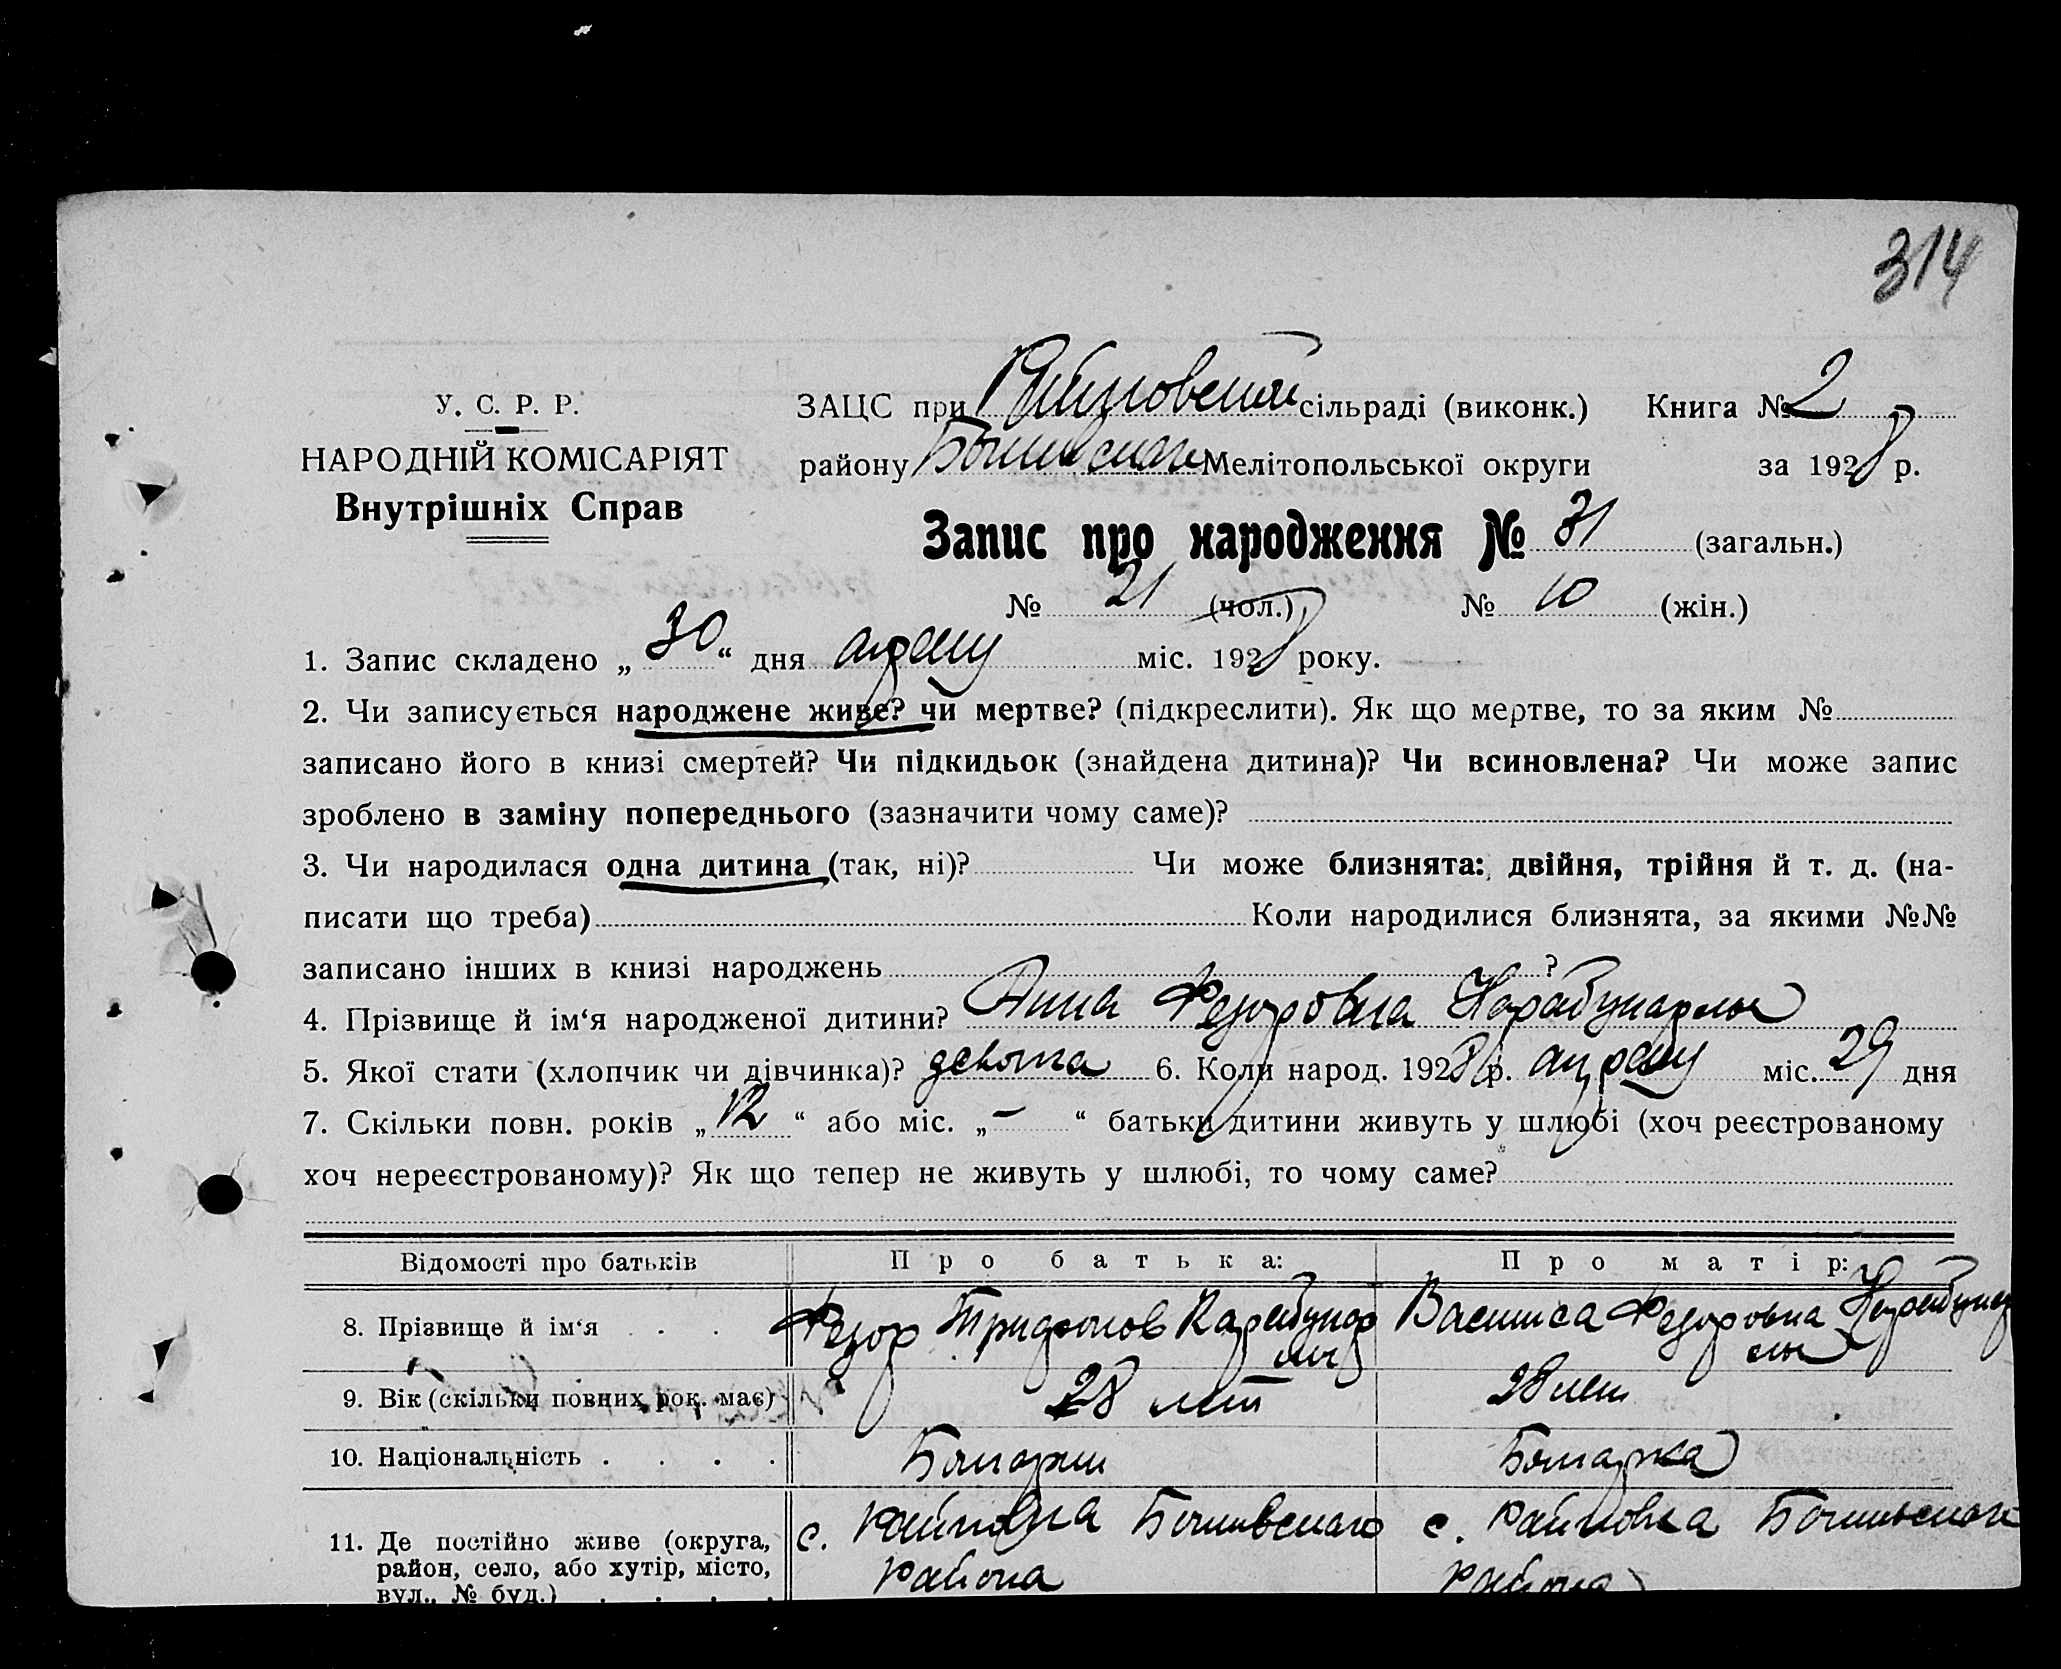 314
У. С. Р. Р.
НАРОДНІЙ КОМІСАРІЯТ
Внутрішніх Справ
ЗАЦС при Райновской сільраді (виконк.) Книга № 2
району Мелітопольської округи за 1928 р.
Запис про народження № 31 (загальн.)
№ 21 (чол.) № 10 (жін.)
1. Запис складено „ 30 “ дня апрелу міс. 1928 року.
2. Чи записується народжене живе? чи мертве? (підкреслити). Як що мертве, то за яким №
записано його в книзі смертей? Чи підкидьок (знайдена дитина)? Чи всиновлена? Чи може запис
зроблено в заміну попереднього (зазначити чому саме)?
3. Чи народилася одна дитина (так, ні)? Чи може близнята: двійня, трійня й т. д. (на-
писати що треба) Коли народилися близнята, за якими №№
записано інших в книзі народжень ?
4. Прізвище й ім‘я народженої дитини? Анна Федоровна
5. Якої стати (хлопчик чи дівчинка)? 6. Коли народ. 1928 р. апрелу міс. 29 дня
7. Скільки повн. років „ 12 “ або міс. „ – “ батьки дитини живуть у шлюбі (хоч реєстрованому
хоч нереєстрованому)? Як що тепер не живуть у шлюбі, то чому саме?
Відомості про батьків Про батька: Про матір:
8. Прізвище й ім‘я . . . Федор Трифонов Василиса Федоровна
9. Вік (скільки повних рок. має) 28 лет 28 лет
10. Національність . . . . Болгарин Болгарка
11. Де постійно живе (округа, район, село, або хутір, місто, вул., № буд.) . . . . с. Райновка района с. Райновка района